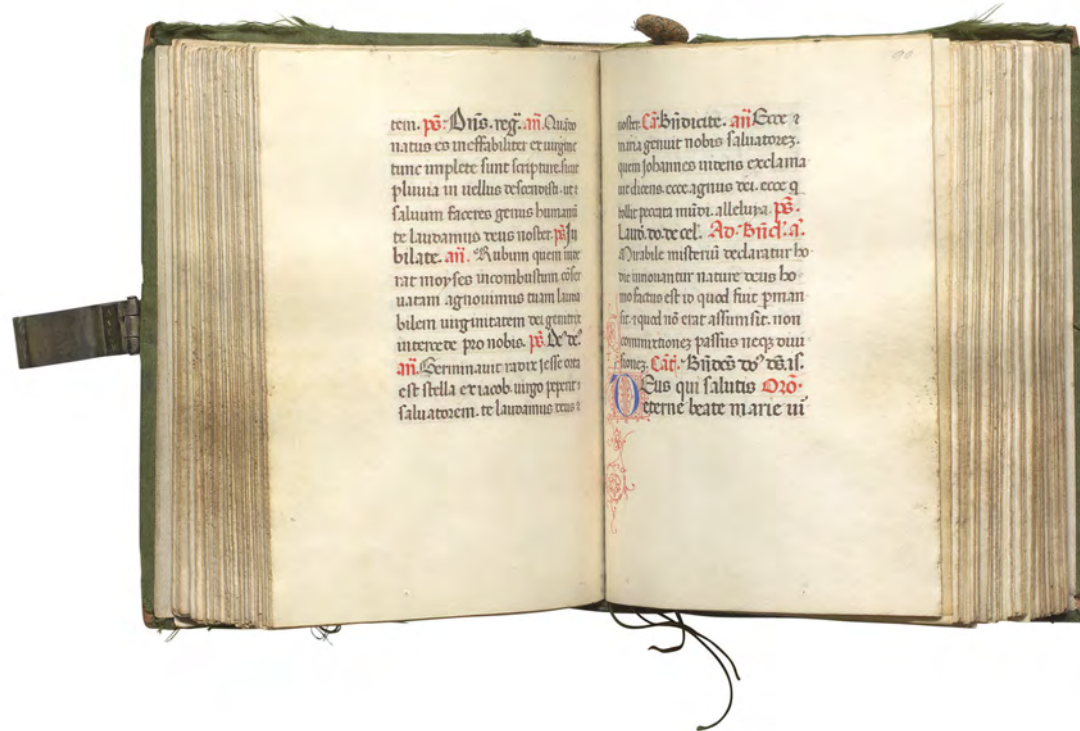 tem. ps̄. Dn̄s. reg̃. an̄. Quādo
natus es ineffabiliter ex uirgine
tunc implete sunt scripture. sicut
pluuia in uellus descendisti. ut
saluum faceres genus humanū
te laudamus deus noster. ps̄. Ju
bilate. an̄. Rubum quem uide
rat moyses incombustum cōser
uatam agnouimus tuam lauda
bilem uirginitatem dei genitrix
intercede pro nobis. ps̄. De⁹ de⁹
an̄. Germinauit radix iesse orta
est stella ex iacob. uirgo peperit
saluatorem. te laudamus deus
noster. Cāt. Bn̄dicite. an̄. Ecce
maria genuit nobis saluatorez.
quem Johannes uidens exclama
uit dicens. ecce agnus dei. ecce q
tollit peccata mūdi. alleluya. ps̄.
Laud. do. de cel. Ad. Bn̄cl. a.
Mirabile misteriū declaratur ho
die innouantur nature deus ho
mo factus est id quod fuit pman
sit. ⁊ quod nō erat assumsit. non
commixtionez passus neqz diui
sionez. Cāt. Bn̄dc̄s do⁹ ds̄. is.
Deus qui salutis Orō.
eterne beate marie ui